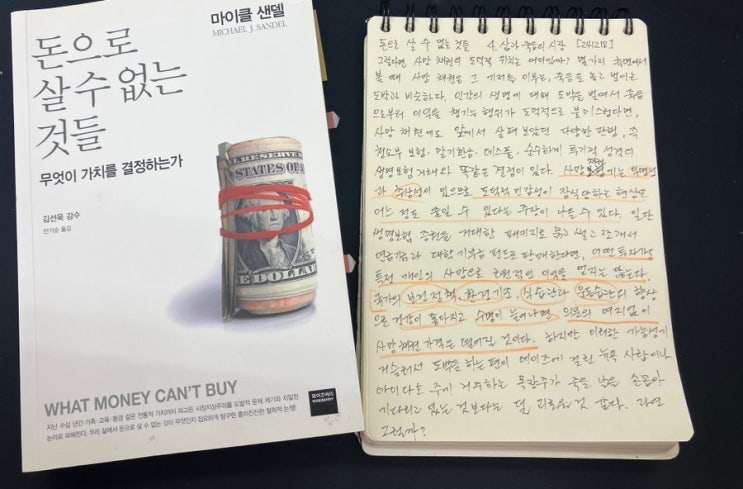 마이클 샌델
MICHAEL J. SANDEL
돈으로
살 수 없는
것들
무엇이 가치를 결정하는가
김선욱 감수
안기순 옮김
WHAT MONEY CAN'T BUY
지난 수십 년간 가족·교육·환경 같은 전통적 가치까지 파고든 시장지상주의를 도발적 문제 제기와 치밀한
논리로 파헤친다. 우리 삶에서 돈으로 살 수 없는 것이 무엇인지 집요하게 탐구한 흥미진진한 철학적 논쟁!
와이즈베리
돈으로 살 수 없는 것들 4. 삶과 죽음의 시장 [241218]
그렇다면 사망 채권의 도덕적 위치는 어디일까? 몇 가지 측면에서
볼 때 사망 채권은 그 기저를 이루는, 죽음을 놓고 벌이는
도박과 비슷하다. 인간의 생명에 대해 도박을 벌여서 죽음
으로부터 이익을 챙기는 행위가 도덕적으로 불미스럽다면,
사망 채권에도 앞에서 살펴보았던 다양한 관행, 즉
청소부 보험, 말기환금, 데스풀, 순수하게 투기적 성격의
생명보험 거래와 똑같은 결점이 있다. 사망 채권에는 익명성
과 추상성이 있으므로 도덕적 민감성이 잠식당하는 현상을
어느 정도 줄일 수 있다는 주장이 나올 수 있다. 일단
생명보험 증권을 거대한 패키지로 묶고 썰고 쪼개서
연금기금과 대학 기부금 펀드로 판매한다면, 어떤 투자가도
특정 개인의 사망으로 근본적인 이익을 얻지는 않는다.
국가의 보건정책, 환경기준, 식습관과 운동습관의 향상
으로 건강이 좋아지고 수명이 늘어나면 의문의 여지없이
사망채권 가격은 떨어질 것이다. 하지만 이러한 가능성에
거슬러서 도박을 하는 편이 에이즈에 걸린 뉴욕 사람이나
아이다호 주에 거주하는 목장주가 죽을 날을 손꼽아
기다리고 있는 것보다는 덜 괴로울 것 같다. 과연
그럴까?